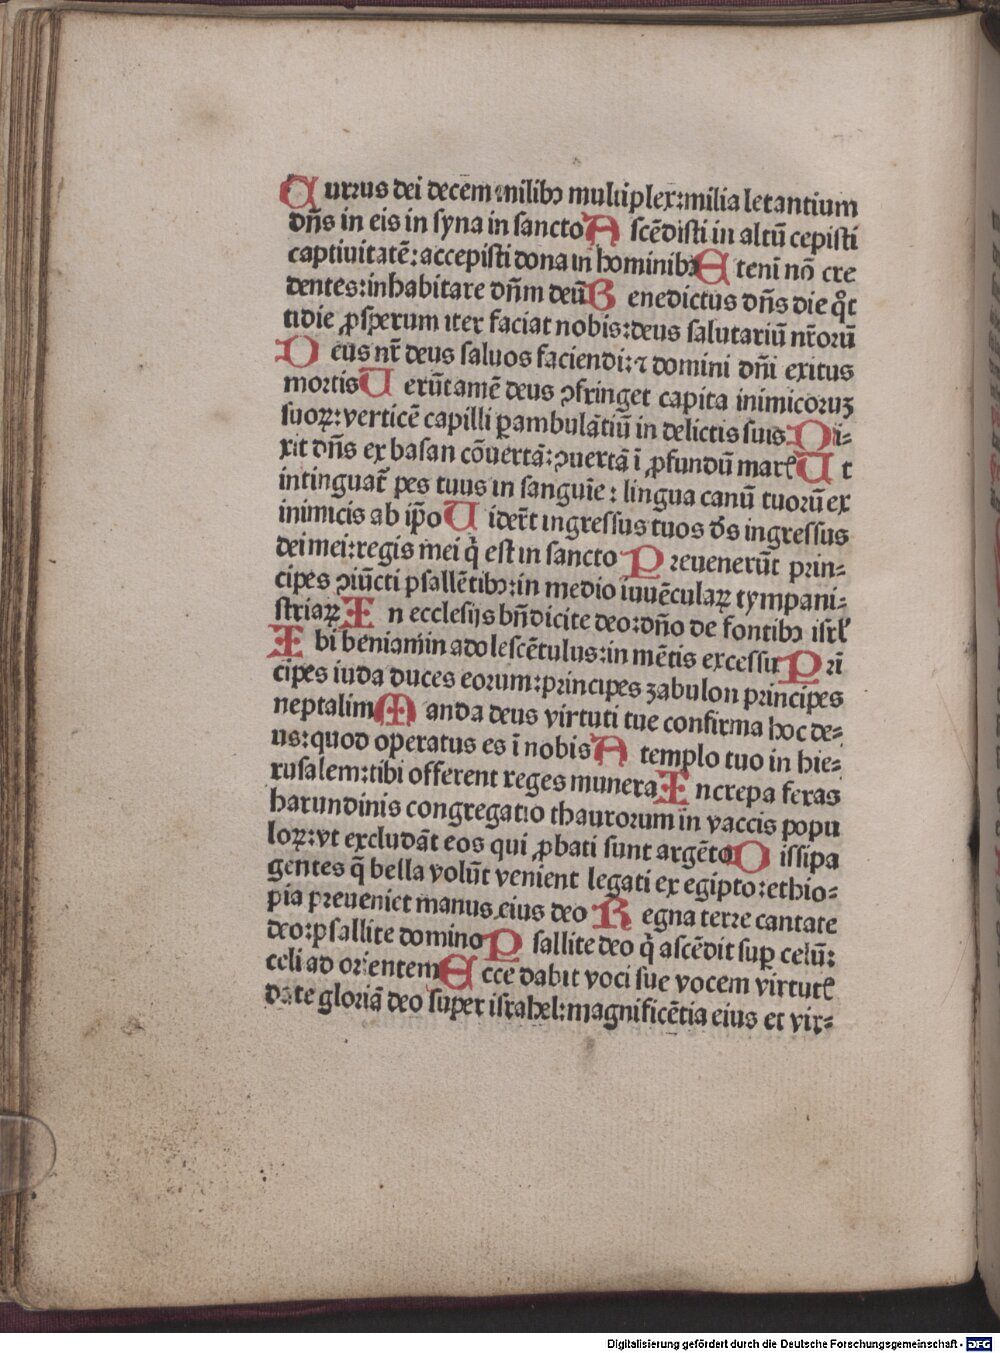 Currus dei decem milibꝰ multiplex: milia letantium
dn̄s in eis in syna in sancto A scēdisti in altū cepisti
captiuitatē: accepisti dona in hominibꝰ E teni nō cre
dentes: inhabitare dn̄m deū B enedictus dn̄s die q̊t
tidie ꝓsperum iter faciat nobis: deus salutariū nr̄orū
D eus nr̄ deus saluos faciendi: ⁊ domini dn̄i exitus
mortis U erūtamē deus ꝯfringet capita inimicoruʒ
suoꝝ: verticē capilli ꝑambulātiū in delictis suis Di-
xit dn̄s ex basan cōuertā: ꝯuertā ī ꝓfundū marꝭ U t
intinguat̄ pes tuus in sanguīe: lingua canū tuorū ex
inimicis ab ip̄o U ider̄t ingressus tuos d̄s ingressus
dei mei: regis mei q̇ est in sancto P reuenerūt prin-
cipes ꝯiūcti psallētibꝰ: in medio iuuēculaꝝ tympani-
striaꝝ I n ecclesijs bn̄dicite deo: dn̄o de fontibꝰ isrl̄
I bi beniamin adolescētulus: in mētis excessu P rī
cipes iuda duces eorum: principes zabulon principes
neptalim M anda deus virtuti tue confirma hoc de-
us: quod operatus es ī nobis A templo tuo in hie-
rusalem: tibi offerent reges munera I ncrepa feras
harundinis congregatio thaurorum in vaccis popu
loꝝ: vt excludāt eos qui ꝓbati sunt argēto D issipa
gentes q̄ bella volūt venient legati ex egipto: ethio-
pia preueniet manus eius deo R egna terre cantate
deo: psallite domino P sallite deo q̇ ascēdit suꝑ celū:
celi ad orientem E cce dabit voci sue vocem virtutꝭ
date gloriā deo super israhel: magnificētia eius et vir-
Digitalisierung gefördert durch die Deutsche Forschungsgemeinschaft - DFG